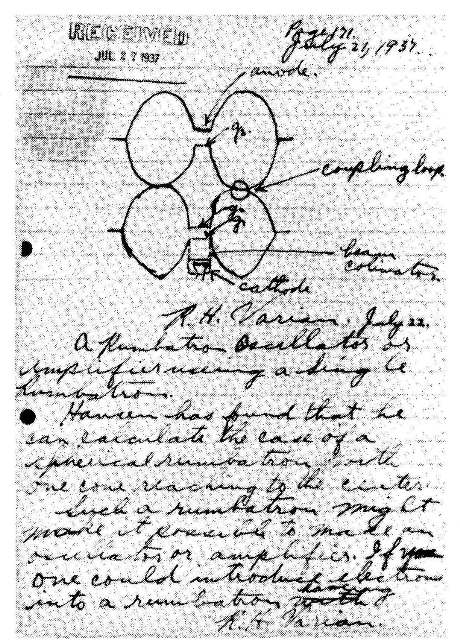 RECEIVED
JUL 27 1937
Page 171.
July 21, 1937.
anode.
g.
coupling loop
g.
g.
beam
colimator.
cathode
R. H. Varian. July 22.
A Rumbatron Oscillator or
amplifier using a single
rumbatron.
Hansen has found that he
can calculate the case of a
spherical rumbatron with
one cone reaching to the center.
Such a rumbatron might
make it possible to make an
oscillator or amplifier. If
one could introduce electrons
into a rumbatron
R. H. Varian.